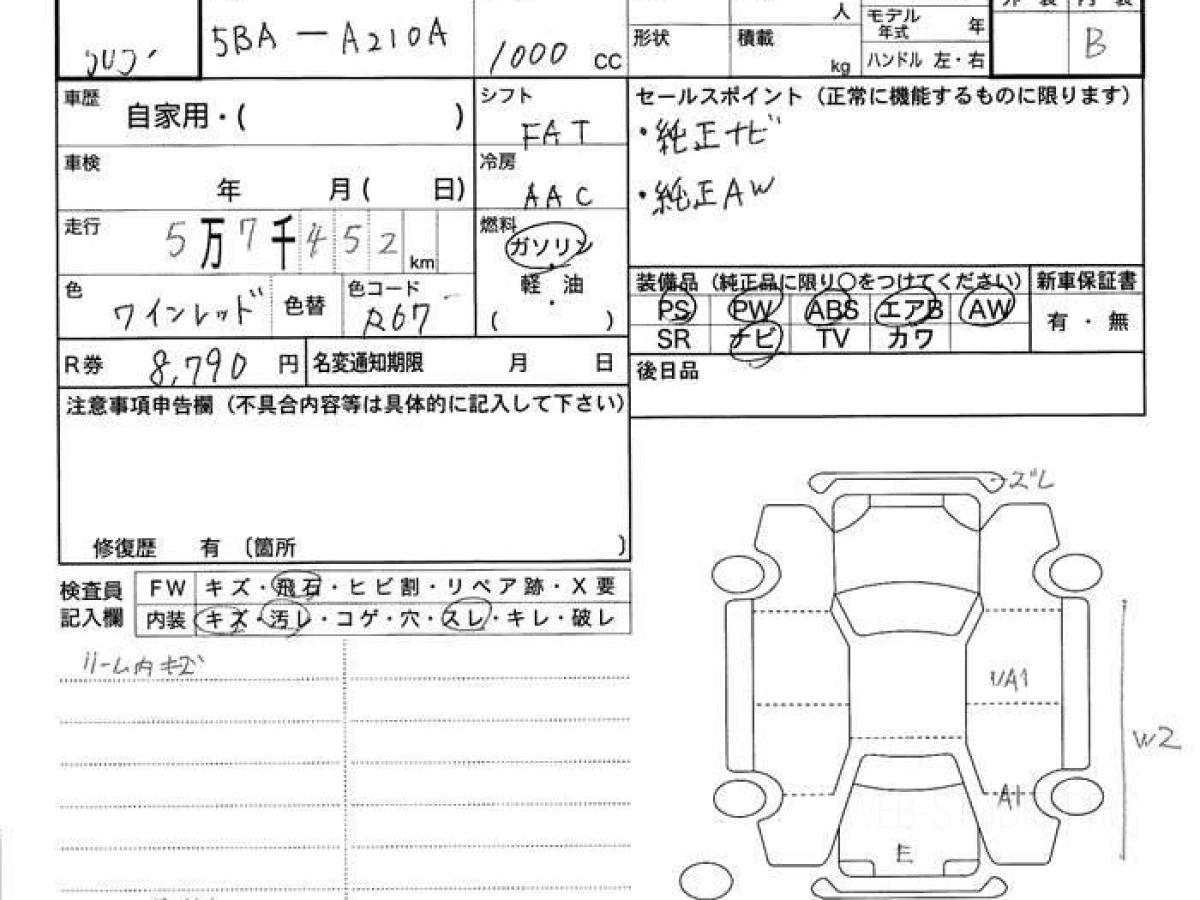 5BA-A210A
1000 cc
人
形状 積載 kg
モデル年式 年
ハンドル 左・右
B
車歴 自家用・( )
シフト FAT
セールスポイント（正常に機能するものに限ります）
・純正ナビ
・純正AW
車検 年 月( 日)
冷房 AAC
走行 5万7千452km
燃料 ガソリン
軽・油
( )
色 ワインレッド 色替 色コード R67
装備品（純正品に限り○をつけてください） 新車保証書
PS PW ABS エアB AW 有・無
SR ナビ TV カワ
R券 8,790 円 名変通知期限 月 日
後日品
注意事項申告欄（不具合内容等は具体的に記入して下さい）
修復歴 有 〔箇所 〕
検査員記入欄
FW キズ・飛石・ヒビ割・リペア跡・X要
内装 キズ・汚レ・コゲ・穴・スレ・キレ・破レ
ルーム内キズ
ズレ
UA1
W2
A1
E